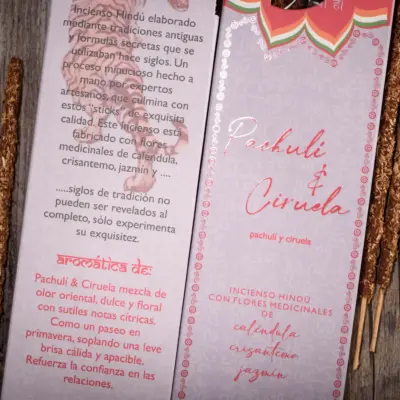 Incienso Hindú elaborado
mediante tradiciones antiguas
y formulas secretas que se
utilizaban hace siglos. Un
proceso minucioso hecho a
mano por expertos
artesanos, que culmina con
estos "sticks" de exquisita
calidad. Este incienso está
fabricado con flores
medicinales de calendula,
crisantemo, jazmín y ....
.....siglos de tradición no
pueden ser revelados al
completo, sólo experimenta
su exquisitez.
aromática de:
Pachulí & Ciruela mezcla de
olor oriental, dulce y floral
con sutiles notas cítricas.
Como un paseo en
primavera, soplando una leve
brisa cálida y apacible.
Refuerza la confianza en las
relaciones.
Pachulí
&
Ciruela
pachulí y ciruela
INCIENSO HINDÚ
CON FLORES MEDICINALES
DE
caléndula
crisantemo
jazmín